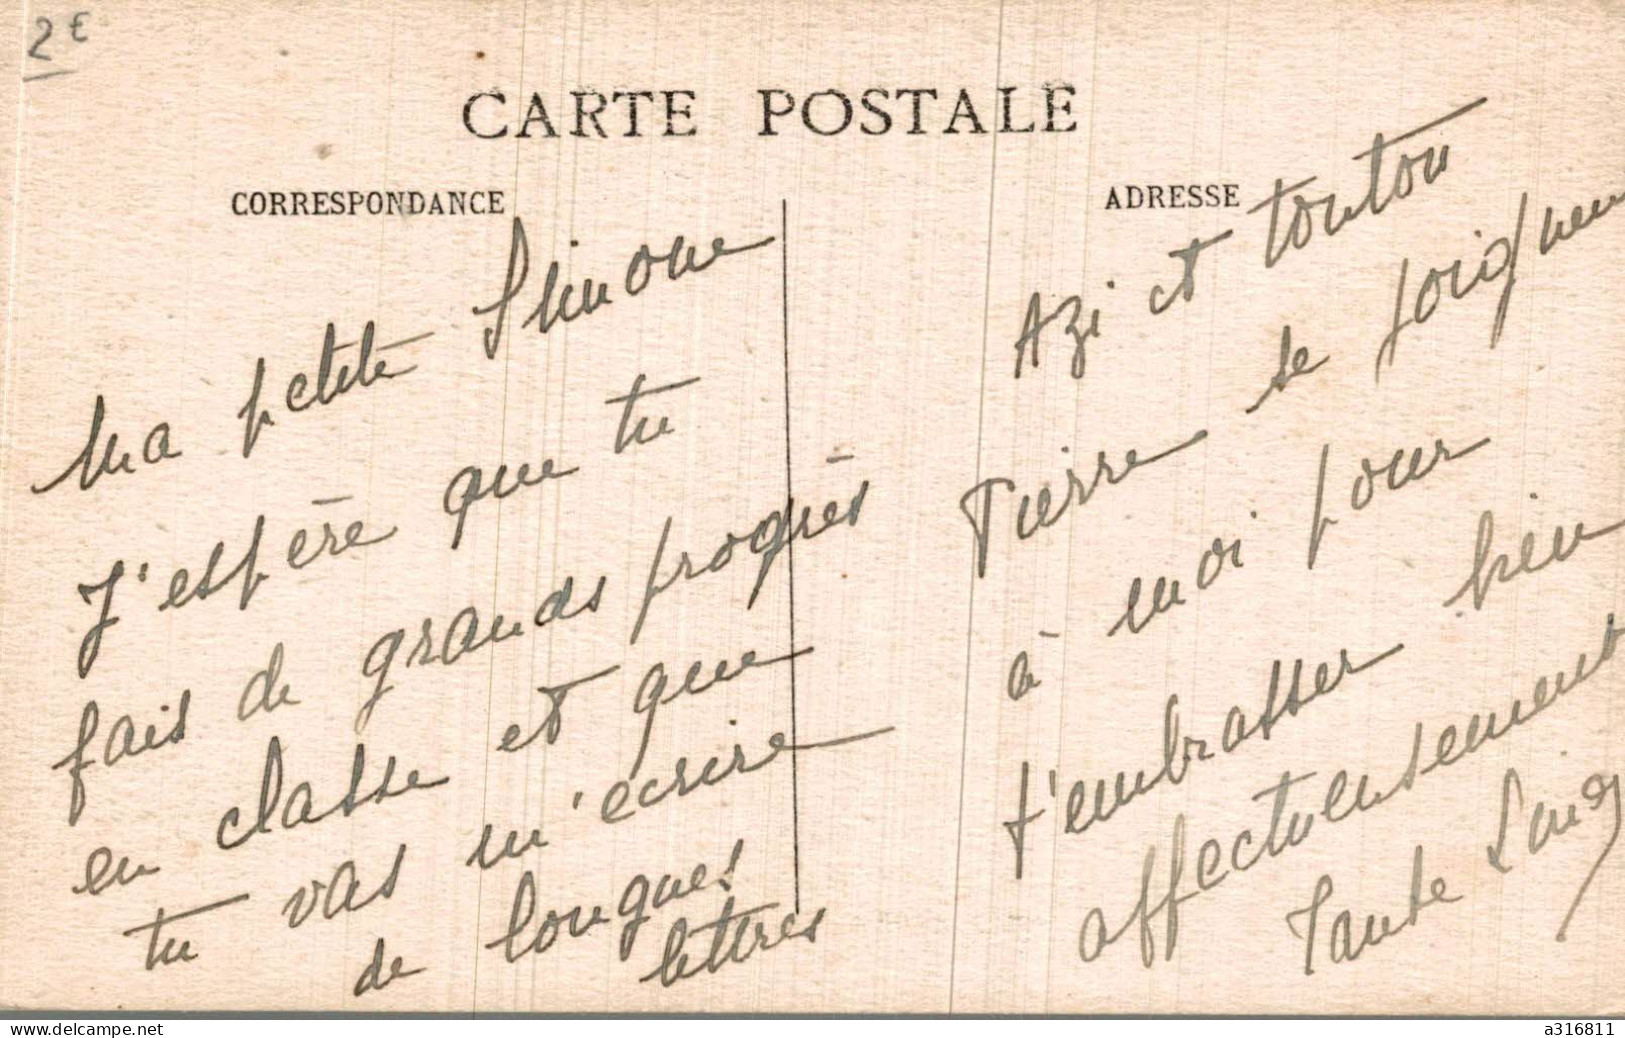 2€
CARTE POSTALE
CORRESPONDANCE
ADRESSE
Ma petite Simone
J'espère que tu
fais de grands progrès
en classe et que
tu vas m'écrire
de longues
lettres
Azi et tonton
Pierre se joignent
à moi pour
t'embrasser bien
affectueusement
Tante
delcampe.net
a316811